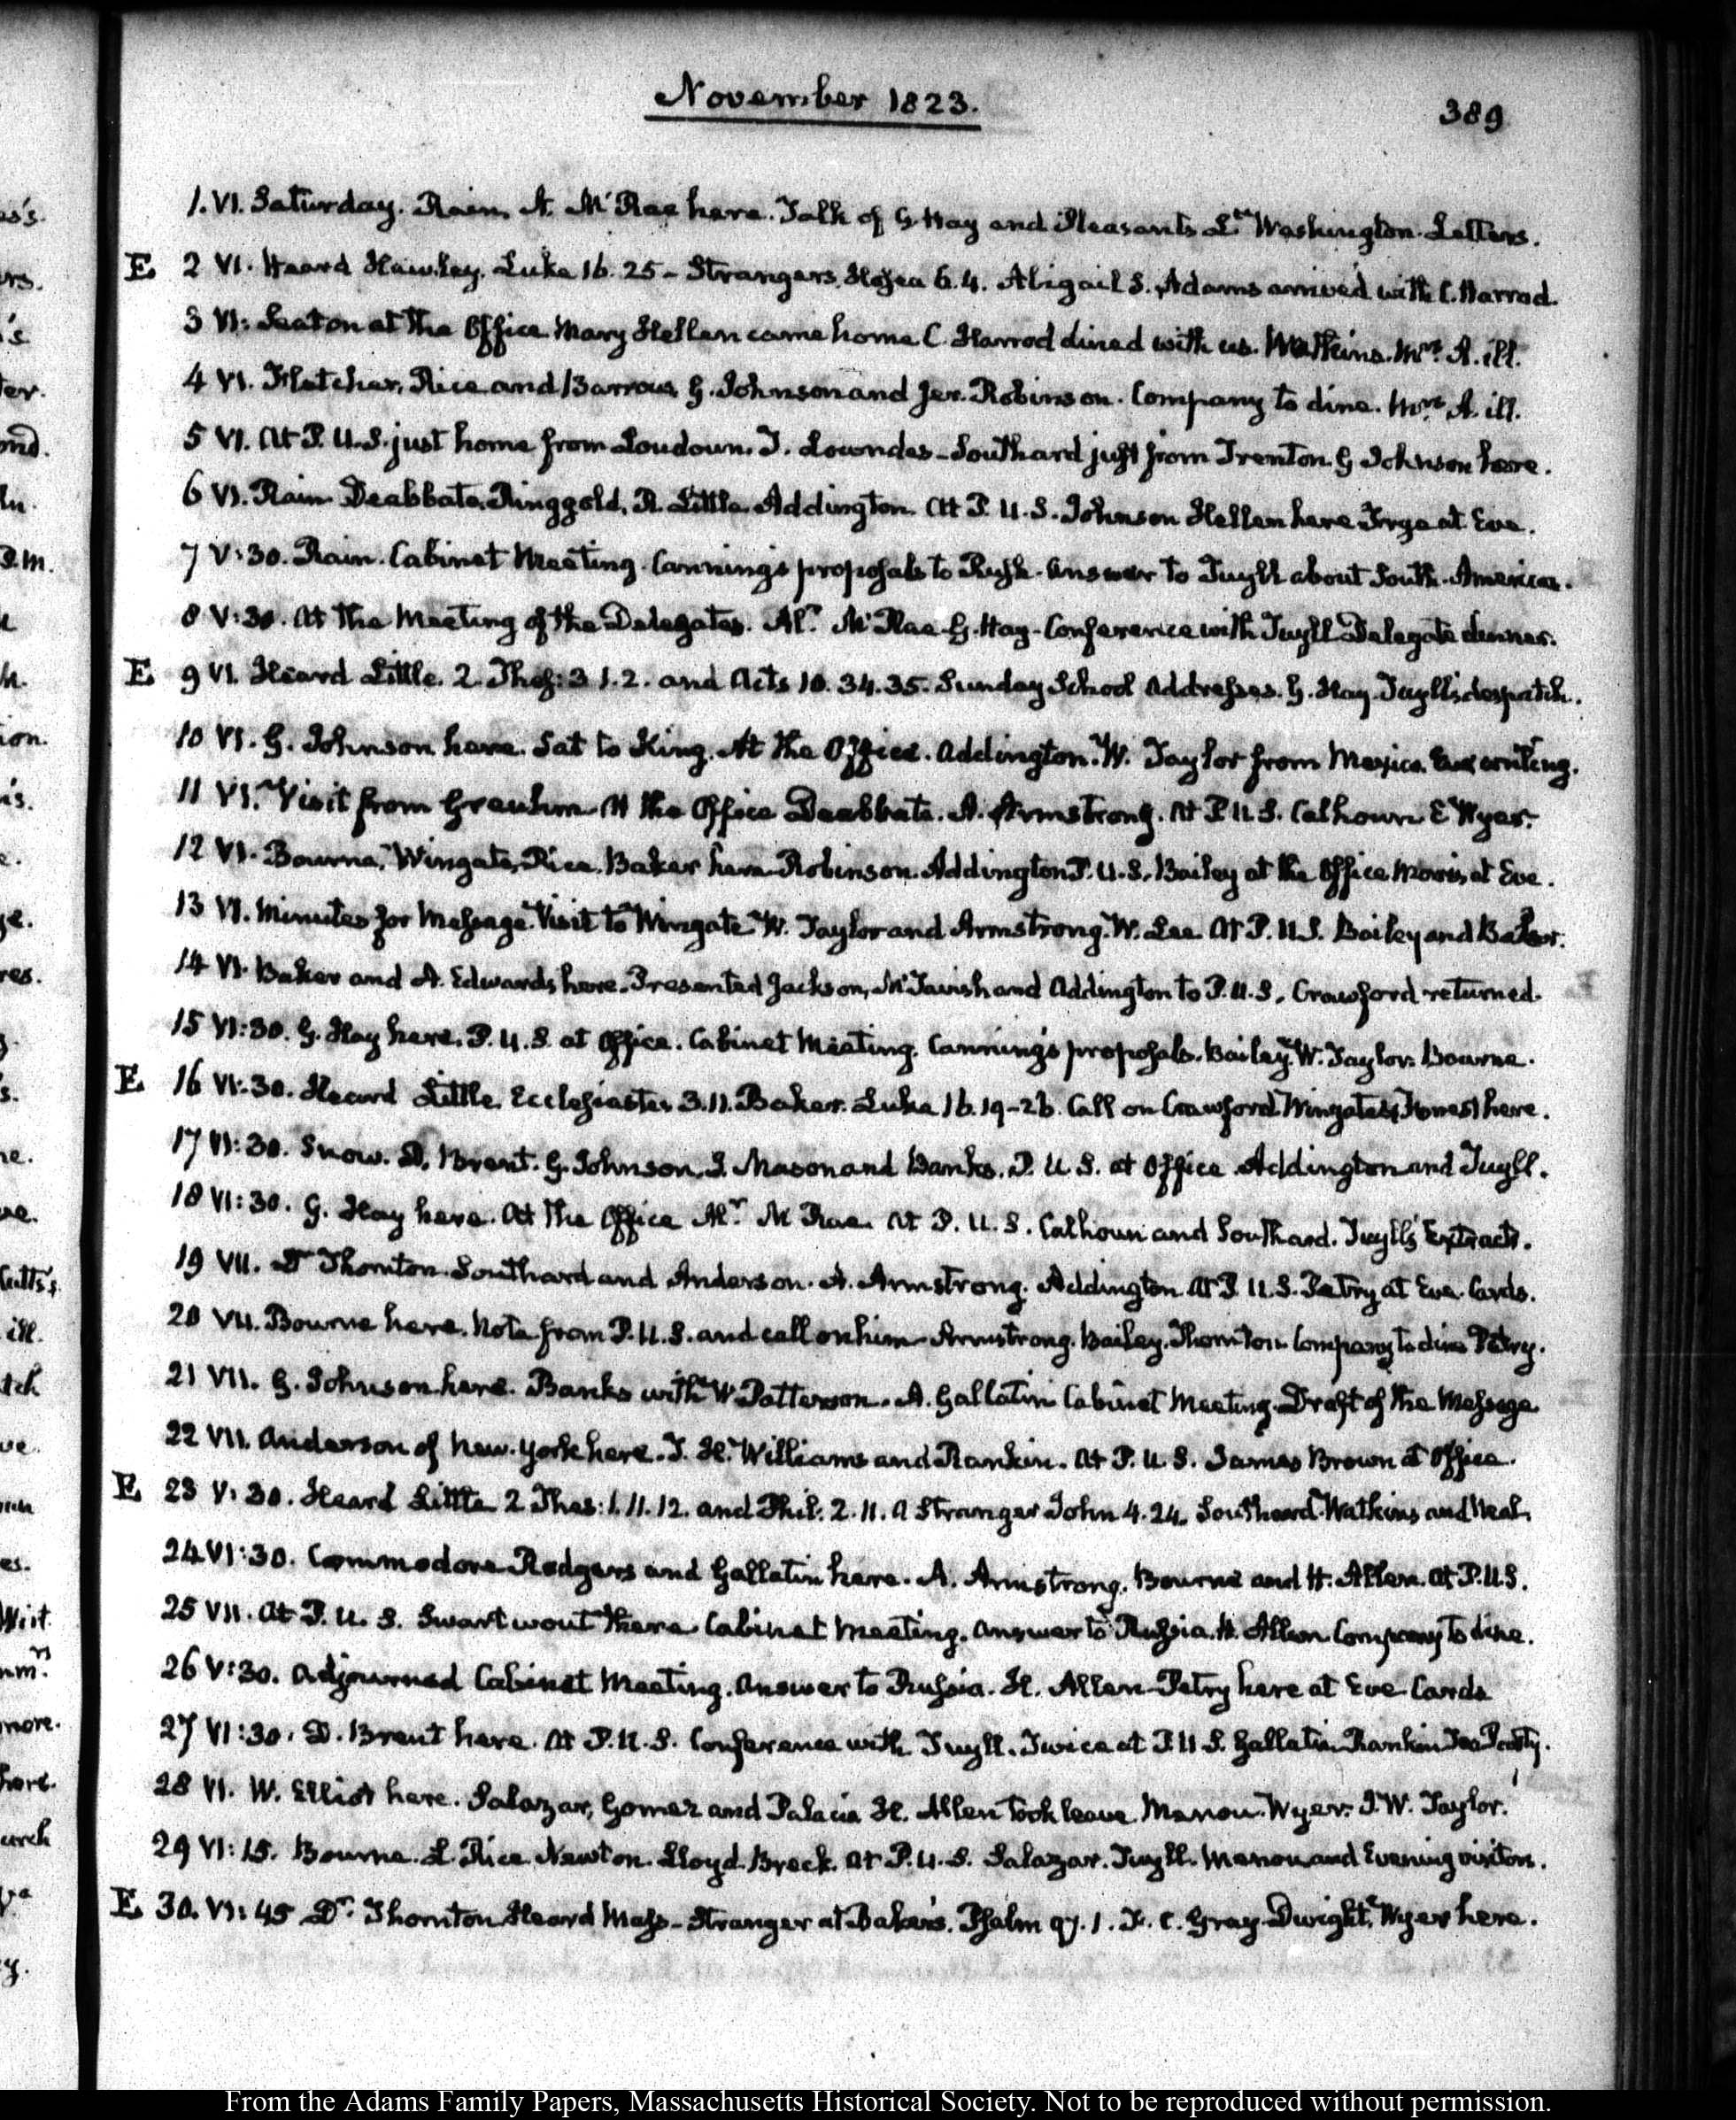 November 1823.
389
1. VI. Saturday. Rain. A. McRae here. Talk of G Hay and Pleasants Lt. Washington Letters.
E 2 VI. Heard Hawley. Luke 16. 25 - Strangers. Hosea 6. 4. Abigail S. Adams arrived with C. Harrod.
3 VI: Seaton at the Office Mary Hellen came home C. Harrod dined with us. Watkins. Mrs. A. ill.
4 VI. Fletcher, Rice and Barrows G. Johnson and Jer. Robinson. Company to dine. Mrs. A. ill.
5 VI. At P. U. S. just home from Loudoun. T. Lowndes - Southard just from Trenton. G Johnson here.
6 VI. Rain. Deabbate. Ringgold, R. Little. Addington. At P. U. S. Johnson Hellen here Frye at Eve.
7 V:30. Rain. Cabinet Meeting. Canning's proposals to Rush. Answer to Tuyll about South-America.
8 V:30. At the Meeting of the Delegates. Alr. McRae. G. Hay - Conference with Tuyll Delegate dinner.
E 9 VI. Heard Little. 2. Thes: 3 1. 2. and Acts 10. 34. 35. Sunday School Addresses. G. Hay. Tuyll's despatch.
10 VI. G. Johnson here. Sat to King. At the Office. Addington. W. Taylor from Mexico.
11 VI. Visit from Greuhm At the Office Deabbate. A. Armstrong. At P. U. S. Calhoun E Wyer.
12 VI. Bourne, Wingate, Rice. Baker here. Robinson. Addington P. U. S. Bailey at the Office at Eve.
13 VI. Minutes for Message. Visit to Wingate. W. Taylor and Armstrong. W. Lee. At P. U. S. Bailey and Baker.
14 VI. Baker and A. Edwards here. Presented Jackson, McTavish and Addington to P. U. S. Crawford returned.
15 VI:30. G. Hay here. P. U. S. at Office. Cabinet Meeting. Canning's proposals. Bailey. W. Taylor. Bourne.
E 16 VI:30. Heard Little. Ecclesiastes 3. 11. Baker. Luke 16. 19-26. Call on Crawford Wingate here.
17 VI:30. Snow. D. Brent. G. Johnson. J. Mason and Banks. P. U. S. at Office. Addington and Tuyll.
18 VI:30. G. Hay here. At the Office Alr. McRae. At P. U. S. Calhoun and Southard. Tuyll's Extract.
19 VII. Dr Thornton. Southard and Anderson. A. Armstrong. Addington At P. U. S. Petry at Eve. Cards.
20 VII. Bourne here. Note from P. U. S. and call on him Armstrong. Bailey. Thornton Company to dine Petry.
21 VII. G. Johnson here. Banks with W. Patterson. A. Gallatin Cabinet Meeting. Draft of the Message
22 VII. Anderson of New-York here. T. H. Williams and Rankin. At P. U. S. James Brown at Office.
E 23 V:30. Heard Little 2. Thes: 1. 11. 12. and Phil: 2. 11. A Stranger John 4. 24. Southard. Watkins and Neal.
24 VI:30. Commodore Rodgers and Gallatin here. A. Armstrong. Bourne and H. Allen. At P. U. S.
25 VII. At P. U. S. Swartwout there Cabinet Meeting. Answer to Russia. H. Allen Company to dine.
26 V:30. Adjourned Cabinet Meeting. Answer to Russia. H. Allen - Petry here at Eve Cards
27 VI:30. D. Brent here. At P. U. S. Conference with Tuyll. Twice at P. U S. Gallatin Rankin Tea Party.
28 VI. W. Elliot here. Salazar, Gomez and Palacio H. Allen took leave. Menou. Wyer. J. W. Taylor.
29 VI:15. Bourne. L. Rice Newton. Lloyd. Breck. At P. U. S. Salazar. Tuyll. Menou and Evening visitors.
E 30. VI:45 Dr. Thornton Heard Mass - Stranger at Baker's. Psalm 97. 1. F. C. Gray. Dwight, Wyer here.
From the Adams Family Papers, Massachusetts Historical Society. Not to be reproduced without permission.